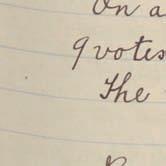 On a
9 votes
The